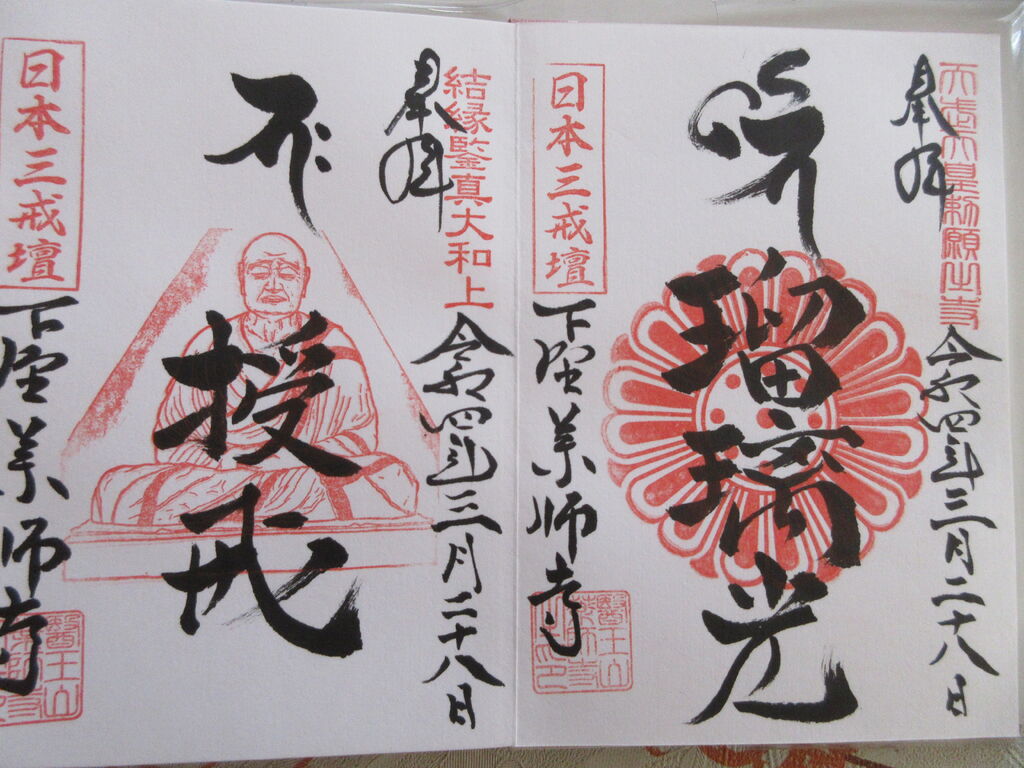 天武天皇勅願之寺
奉拝
令和四年三月二十八日
瑠璃光
日本三戒壇
下野薬師寺
結縁鑒真大和上
奉拝
令和四年三月二十八日
授戒
日本三戒壇
下野薬師寺